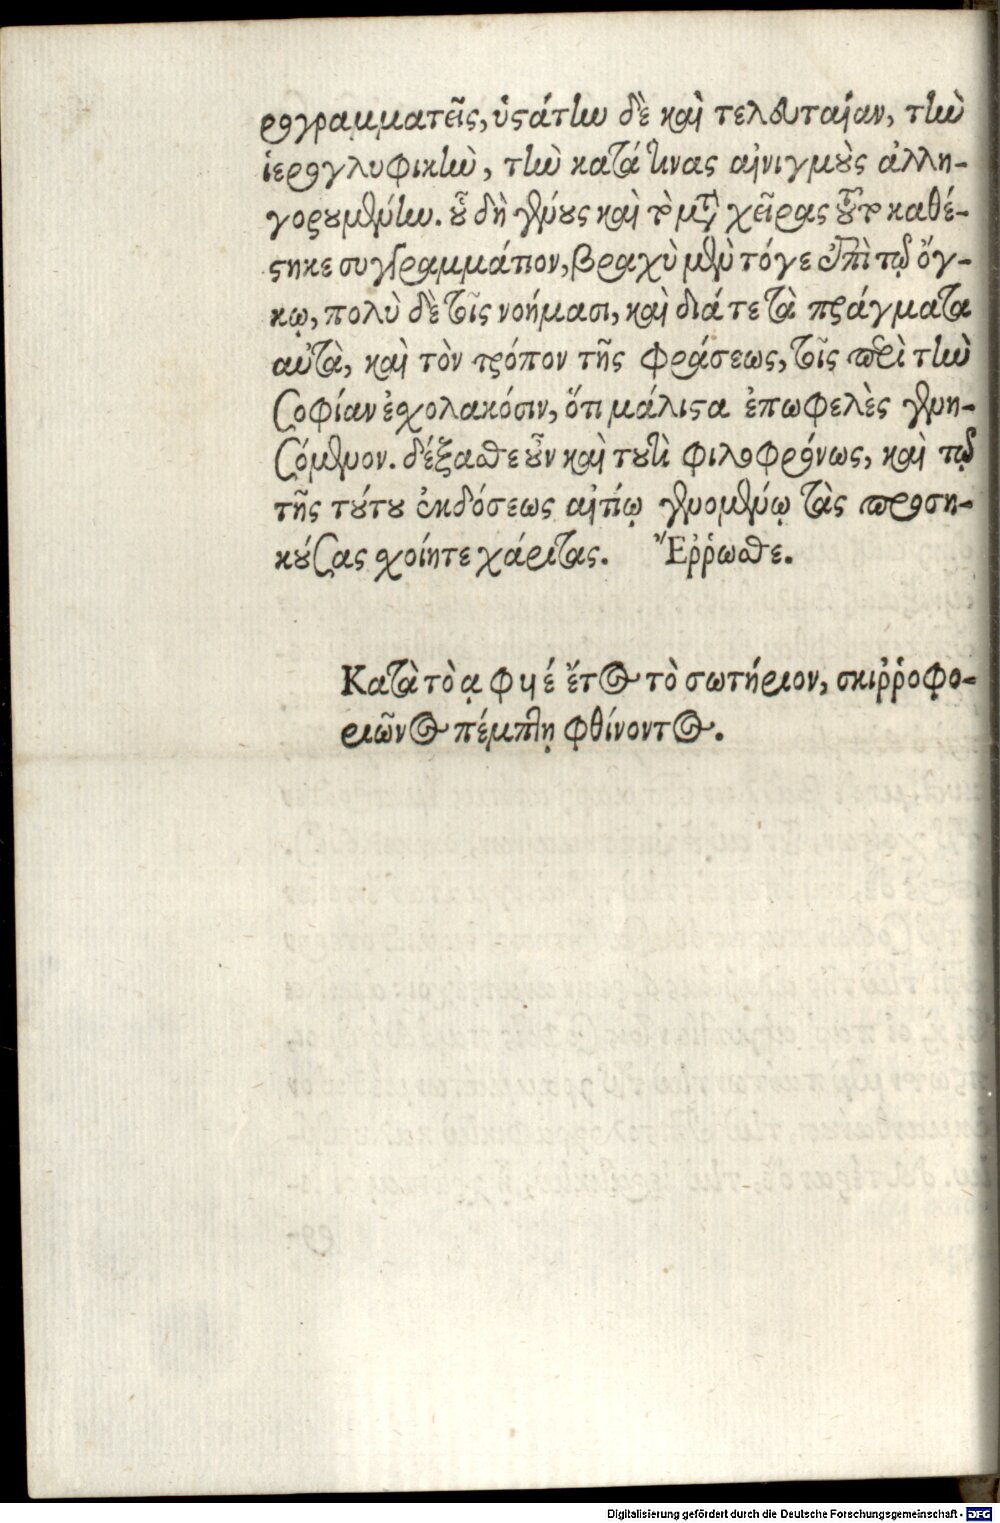 ρογραμματεῖς, ὑστάτην δὲ καὶ τελευταίαν, τὴν
ἱερογλυφικὴν, τὴν κατά τινας αἰνιγμοὺς ἀλλη-
γορουμένην. οὗ δὴ γένους καὶ τὸ μετὰ χεῖρας τοῦτο καθέ-
στηκε συγγραμμάτιον, βραχὺ μὲν τόγε ἐπὶ τῷ ὄγ-
κῳ, πολὺ δὲ τοῖς νοήμασι, καὶ διά τε τὰ πράγματα
αὐτὰ, καὶ τὸν τρόπον τῆς φράσεως, τοῖς περὶ τὴν
σοφίαν ἐσχολακόσιν, ὅτι μάλιστα ἐπωφελὲς γενη-
σόμενον. δέξασθε οὖν καὶ τουτὶ φιλοφρόνως, καὶ τῷ
τῆς τούτου ἐκδόσεως αἰτίῳ γενομένῳ τὰς προση-
κούσας σχοίητε χάριτας. Ἔῤῥωσθε.
Κατὰ τὸ α φ ϟ έ ἔτος τὸ σωτήριον, σκιῤῥοφο-
ριῶνος πέμπτῃ φθίνοντος.
Digitalisierung gefördert durch die Deutsche Forschungsgemeinschaft - DFG